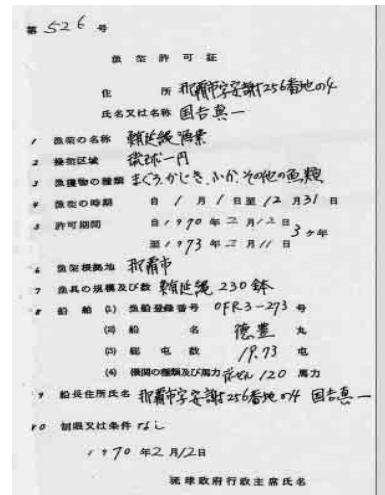 第 526 号
漁業許可証
住所 那覇市字安謝256番地の4
氏名又は名称 国吉真一
1 漁業の名称 鮪延縄漁業
2 操業区域 琉球一円
3 漁獲物の種類 まぐろ、かじき、ふか、その他の魚類
4 漁業の時期 自 1月1日至12月31日
5 許可期間 自1970年2月12日
至1973年2月11日 3ヶ年
6 漁業根拠地 那覇市
7 漁具の規模及び数 鮪延縄 230鉢
8 船舶 (1) 漁船登録番号 OFR3-273号
(2) 船名 徳豊 丸
(3) 総屯数 19.73 屯
(4) 機関の種類及び馬力 120 馬力
9 船長住所氏名 那覇市字安謝256番地の4 国吉真一
10 制限又は条件 なし
1970年2月12日
琉球政府行政主席氏名